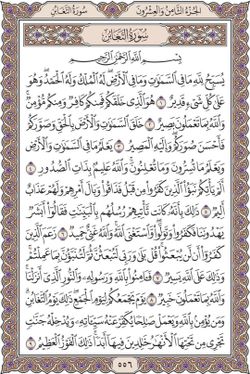 الجزء الثامن والعشرون سورة التغابن
سورة التغابن
بسم الله الرحمن الرحيم
يسبح لله ما في السموات وما في الأرض له الملك وله الحمد وهو
على كل شيء قدير ١ هو الذي خلقكم فمنكم كافر ومنكم مؤمن
والله بما تعملون بصير ٢ خلق السموات والأرض بالحق وصوركم
فأحسن صوركم وإليه المصير ٣ يعلم ما في السموات والأرض
ويعلم ما تسرون وما تعلنون والله عليم بذات الصدور ٤
ألم يأتكم نبؤا الذين كفروا من قبل فذاقوا وبال أمرهم ولهم عذاب
أليم ٥ ذلك بأنه كانت تأتيهم رسلهم بالبينات فقالوا أبشر
يهدوننا فكفروا وتولوا واستغنى الله والله غني حميد ٦ زعم الذين
كفروا أن لن يبعثوا قل بلى وربي لتبعثن ثم لتنبؤن بما عملتم
وذلك على الله يسير ٧ فآمنوا بالله ورسوله والنور الذي أنزلنا
والله بما تعملون خبير ٨ يوم يجمعكم ليوم الجمع ذلك يوم التغابن
ومن يؤمن بالله ويعمل صالحا يكفر عنه سيئاته ويدخله جنات
تجري من تحتها الأنهار خالدين فيها أبدا ذلك الفوز العظيم ٩
٥٥٦